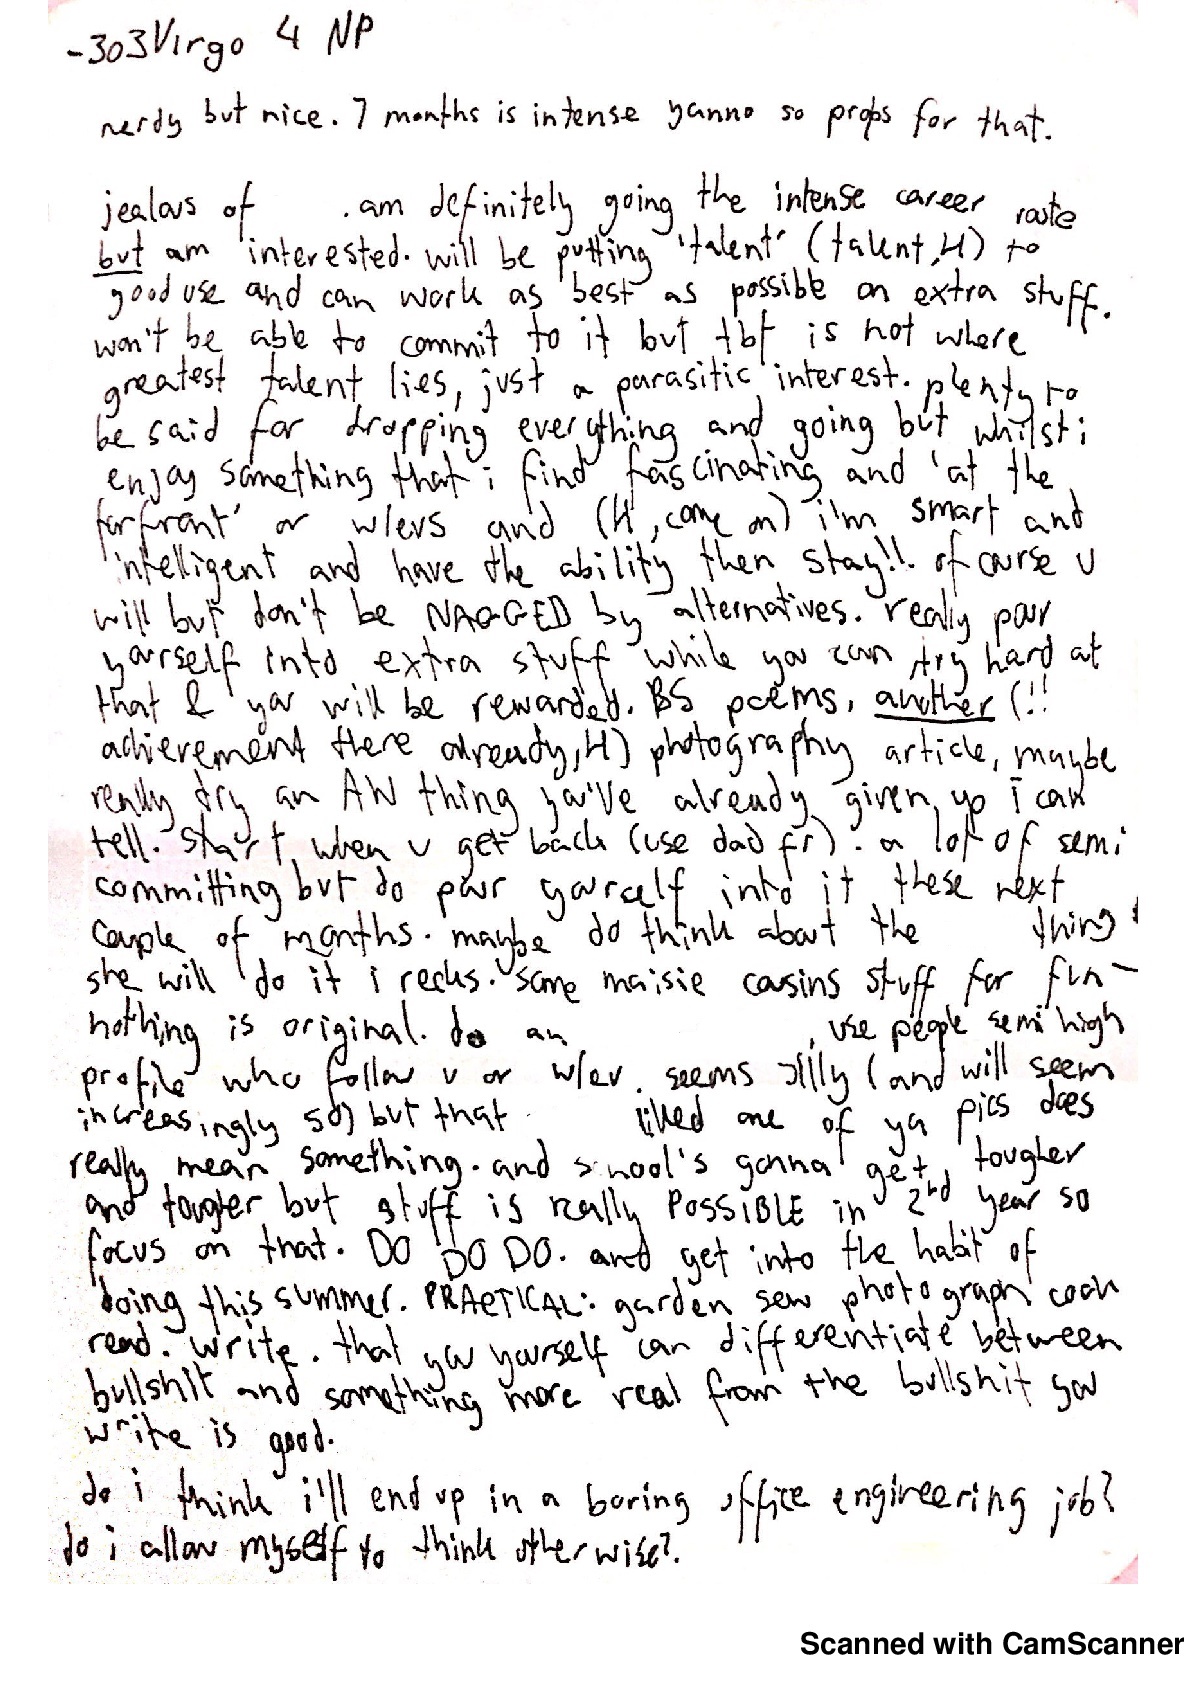 -303Virgo 4 NP
nerdy but nice. 7 months is intense yanno so props for that.
jealous of . am definitely going the intense career route
but am interested. will be putting 'talent' (talent, H) to
good use and can work as best as possible on extra stuff.
won't be able to commit to it but tbf is not where
greatest talent lies, just a parasitic interest. plenty to
be said for dropping everything and going but whilst i
enjoy something that i find fascinating and 'at the
forfront' or w/evs and (H, come on) i'm smart and
intelligent and have the ability then stay!! of course u
will but don't be NAGGED by alternatives. really pour
yourself into extra stuff while you can try hard at
that & you will be rewarded. BS poems, another (!!
achievement there already, H) photography article, maybe
really try an AW thing you've already given up i can
tell. start when u get back (use dad fr). a lot of semi
committing but do pour yourself into it these next
couple of months. maybe do think about the thing
she will do it i recks. some maisie cousins stuff for fun -
nothing is original. do an , use people semi high
profile who follow u or w/ev. seems silly (and will seem
increasingly so) but that liked one of ya pics does
really mean something. and school's gonna get tougher
and tougher but stuff is really POSSIBLE in 2nd year so
focus on that. DO DO DO. and get into the habit of
doing this summer. PRACTICAL: garden sew photograph cook
read. write. that you yourself can differentiate between
bullshit and something more real from the bullshit you
write is good.
do i think i'll end up in a boring office engineering job?
do i allow myself to think otherwise?.
Scanned with CamScanner